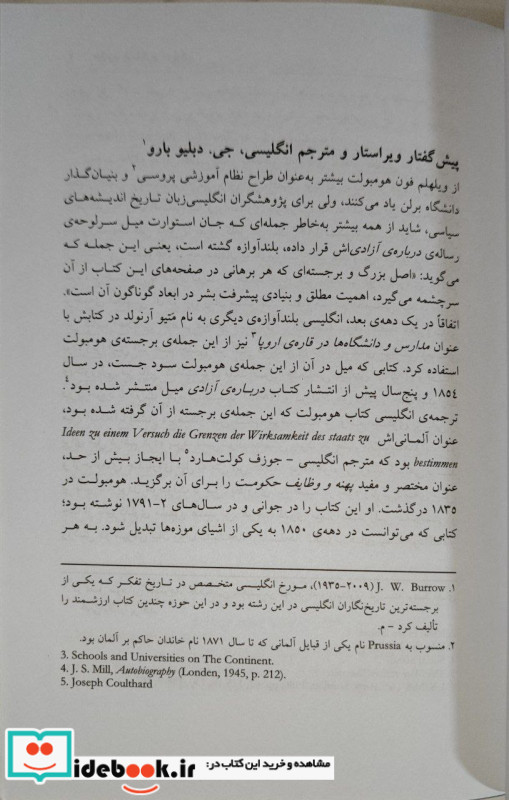 پیش‌گفتار ویراستار و مترجم انگلیسی، جی. دبلیو بارو۱
از ویلهلم فون هومبولت بیشتر به‌عنوان طراح نظام آموزشی پروسی۲ و بنیان‌گذار
دانشگاه برلن یاد می‌کنند، ولی برای پژوهشگران انگلیسی‌زبان تاریخ اندیشه‌های
سیاسی، شاید از همه بیشتر به‌خاطر جمله‌ای که جان استوارت میل سرلوحه‌ی
رساله‌ی درباره‌ی آزادی‌اش قرار داده، بلندآوازه گشته است، یعنی این جمله که
می‌گوید: «اصل بزرگ و برجسته‌ای که هر برهانی در صفحه‌های این کتاب از آن
سرچشمه می‌گیرد، اهمیت مطلق و بنیادی پیشرفت بشر در ابعاد گوناگون آن است».
اتفاقاً در یک دهه‌ی بعد، انگلیسی بلندآوازه‌ی دیگری به نام متیو آرنولد در کتابش با
عنوان مدارس و دانشگاه‌ها در قاره‌ی اروپا۳ نیز از این جمله‌ی برجسته‌ی هومبولت
استفاده کرد. کتابی که میل در آن از این جمله‌ی هومبولت سود جست، در سال
۱۸۵۴ و پنج‌سال پیش از انتشار کتاب درباره‌ی آزادی میل منتشر شده بود۴.
ترجمه‌ی انگلیسی کتاب هومبولت که این جمله‌ی برجسته از آن گرفته شده بود،
عنوان آلمانی‌اش Ideen zu einem Versuch die Grenzen der Wirksamkeit des staats zu
bestimmen بود که مترجم انگلیسی - جوزف کولت‌هارد۵ با ایجاز بیش از حد،
عنوان مختصر و مفید پهنه و وظایف حکومت را برای آن برگزید. هومبولت در
۱۸۳۵ درگذشت. او این کتاب را در جوانی و در سال‌های ۲-۱۷۹۱ نوشته بود؛
کتابی که می‌توانست در دهه‌ی ۱۸۵۰ به یکی از اشیای موزه‌ها تبدیل شود. به هر
۱. J. W. Burrow (۲۰۰۹-۱۹۳۵)، مورخ انگلیسی متخصص در تاریخ تفکر که یکی از
برجسته‌ترین تاریخ‌نگاران انگلیسی در این رشته بود و در این حوزه چندین کتاب ارزشمند را
تألیف کرد - م.
۲. منسوب به Prussia نام یکی از قبایل آلمانی که تا سال ۱۸۷۱ نام خاندان حاکم بر آلمان بود.
3. Schools and Universities on The Continent.
4. J. S. Mill, Autobiography (Londen, 1945, p. 212).
5. Joseph Coulthard
مشاهده و خرید این کتاب در:
idebook.ir